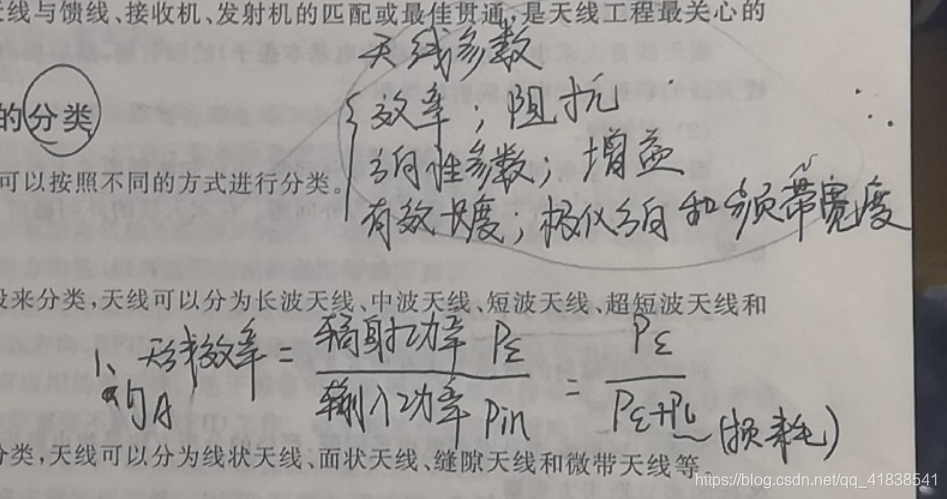 天线与馈线、接收机、发射机的匹配或最佳贯通,是天线工程最关心的
天线参数
效率;阻抗
的分类
方向性参数;增益
可以按照不同的方式进行分类。
有效长度;极化方向和频带宽度
段来分类,天线可以分为长波天线、中波天线、短波天线、超短波天线和
1、天线效率 = 辐射功率 PΣ / 输入功率 Pin = PΣ / PΣ+PL (损耗)
的 A
分类,天线可以分为线状天线、面状天线、缝隙天线和微带天线等。
https://blog.csdn.net/qq_41838541